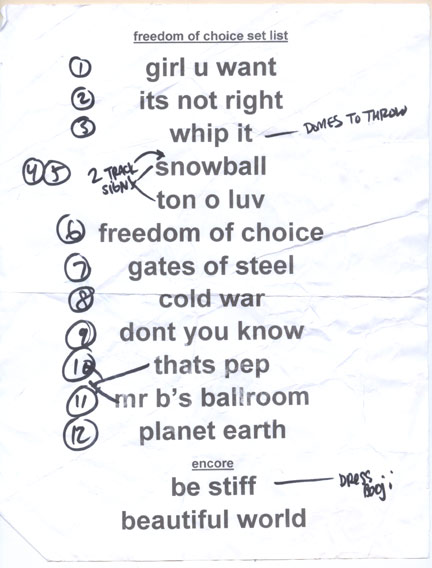 freedom of choice set list
1 girl u want
2 its not right
3 whip it — DOMES TO THROW
4 5 2 TRACK SIGNX snowball
ton o luv
6 freedom of choice
7 gates of steel
8 cold war
9 dont you know
10 thats pep
11 mr b's ballroom
12 planet earth
encore
be stiff — DRESS BOOJI
beautiful world